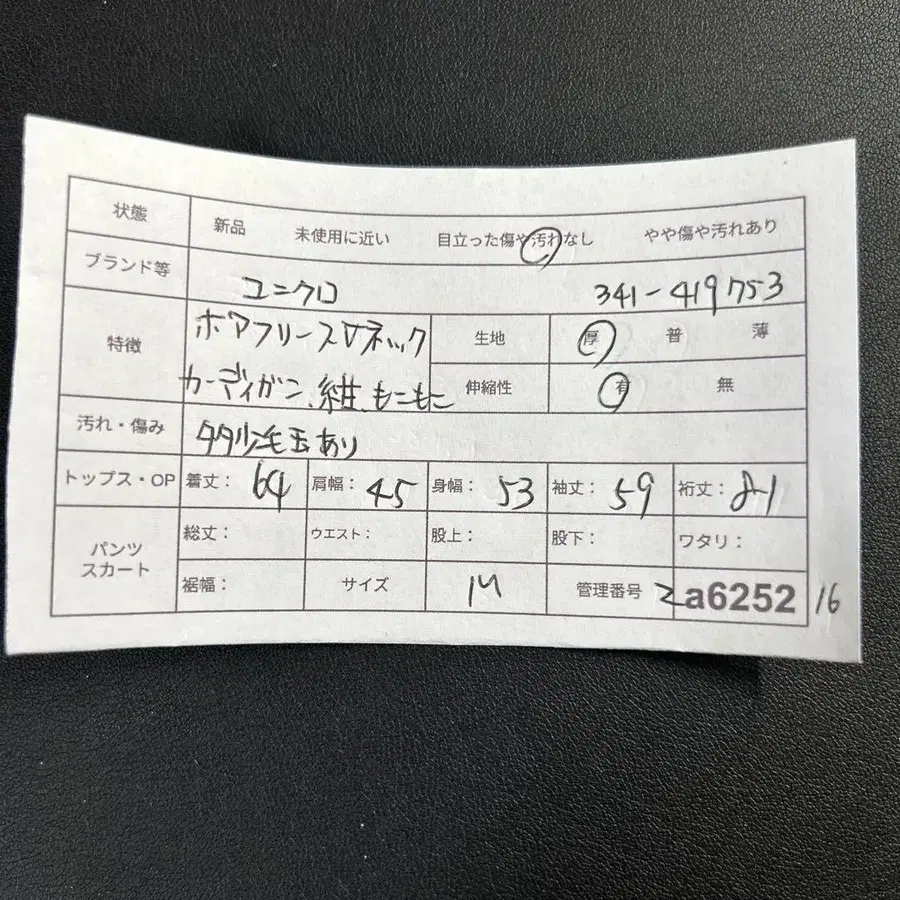 状態 新品 未使用に近い 目立った傷や汚れなし やや傷や汚れあり
ブランド等 ユニクロ 341-419753
特徴 ボアフリースVネック 生地 厚 普 薄
カーディガン、紺、もこもこ 伸縮性 有 無
汚れ・傷み 多少毛玉あり
トップス・OP 着丈: 64 肩幅: 45 身幅: 53 袖丈: 59 裄丈: 81
パンツ スカート 総丈: ウエスト: 股上: 股下: ワタリ:
裾幅: サイズ M 管理番号 2a6252 16